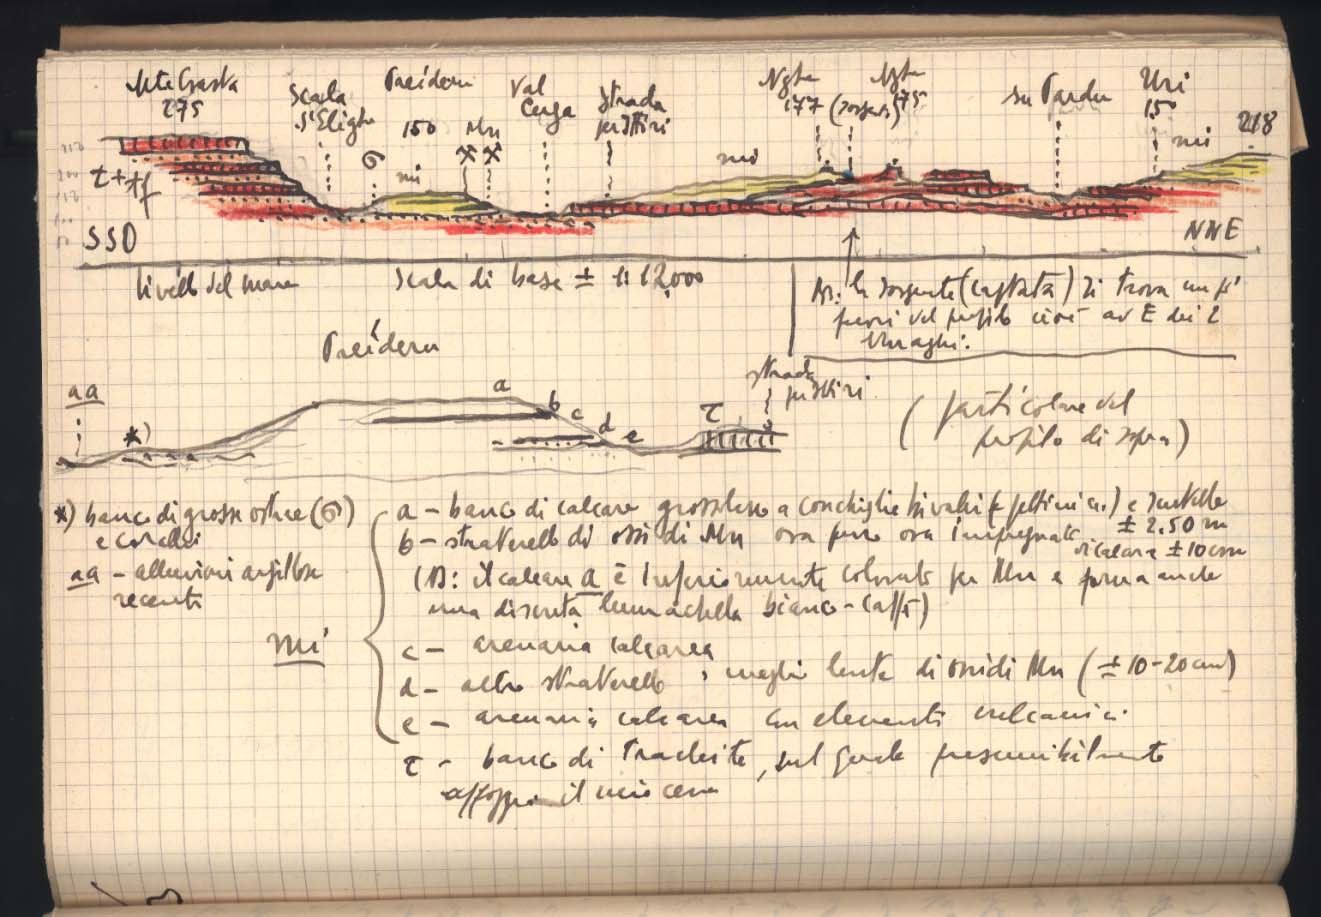 Mte Crasta
275
Scala
S'Elighe
Preideru
150 Mn
Val
Cuga
Strada
pp Ittiri
Nghe
177
(sorgente)
Nghe
175
su Pardu
Uri
150
218
mi
mi
mi
σ
τ + tf
SSO
NNE
livello del mare
Scala di base ± 1:12,000
NB: la sorgente (captata) si trova un po'
fuori del profilo cioè ad E dei 2
Nuraghi.
Preideru
aa
*)
a
b
c
d
e
τ
strada
pp Ittiri
(particolare del
profilo di sopra)
*) banco di grosse ostree (σ)
e coralli
aa - alluvioni argillose
recenti
mi
a - banco di calcare grossolano a conchiglie bivalvi (pettini ) e scutelle
± 2.50 m
b - straterello di ossidi Mn ora puro ora impregnato di calcare ± 10 cm
(NB: il calcare a è inferiormente colorato per Mn e forma anche
una discreta lumachella bianco-caffè)
c - arenaria calcarea
d - altro straterello, meglio lente di ossidi Mn (± 10-20 cm)
e - arenaria calcarea con elementi vulcanici
τ - banco di trachite, sul quale presumibilmente
appoggia il miocene